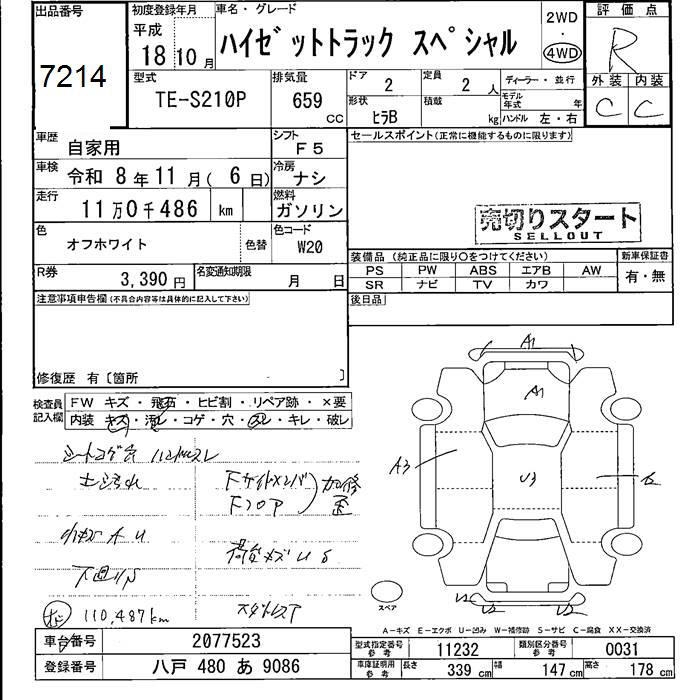 出品番号
7214
初度登録年月
平成
18 10 月
車名・グレード
ハイゼットトラック スペシャル
2WD
・
4WD
評価点
R
外装 内装
C C
型式
TE-S210P
排気量
659
CC
ドア
2
定員
2 人
ディーラー・並行
モデル年式 年
形状
ヒラB
積載
kg
ハンドル 左・右
車歴
自家用
シフト
F5
セールスポイント(正常に機能するものに限ります)
車検
令和 8 年 11 月( 6 日)
冷房
ナシ
走行
11 万 0 千 486 km
燃料
ガソリン
売切りスタート
SELLOUT
色
オフホワイト
色替
色コード
W20
装備品(純正品に限り○をつけてください)
新車保証書
PS PW ABS エアB AW
SR ナビ TV カワ
有・無
R券
3,390 円
名変通知期限
月 日
後日品
注意事項申告欄(不具合内容等は具体的に記入して下さい)
修復歴 有〔箇所 〕
検査員記入欄
FW キズ・飛石・ヒビ割・リペア跡・×要
内装 キズ・汚レ・コゲ・穴・スレ・キレ・破レ
シートコゲ穴 ハンドルスレ
Fサイドメンバ
Fフロア
加修
歪
小キズ A U
荷台キズ U S
下廻りS
110,487km
スタッドレスT
A1
A1
A3
U3
スペア
A-キズ E-エクボ U-凹み W-補修跡 S-サビ C-腐食 XX-交換済
車台番号
2077523
型式指定番号
参考
11232
類別区分番号
参考
0031
登録番号
八戸 480 あ 9086
車庫証明用
参考
長さ
339 cm
幅
147 cm
高さ
178 cm